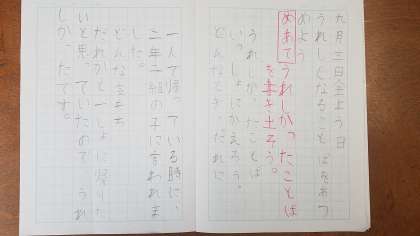 九月三日金よう日
うれしくなることばをあつ
めよう
めあて うれしかったことば
を書き出そう。
うれしかったことば
いっしょにかえろう。
どんなとき、だれに
一人で帰っている時に、
二年一組の子に言われま
した。
どんな気もち
だれかと一しょに帰りた
いと思っていたので、うれ
しかったです。